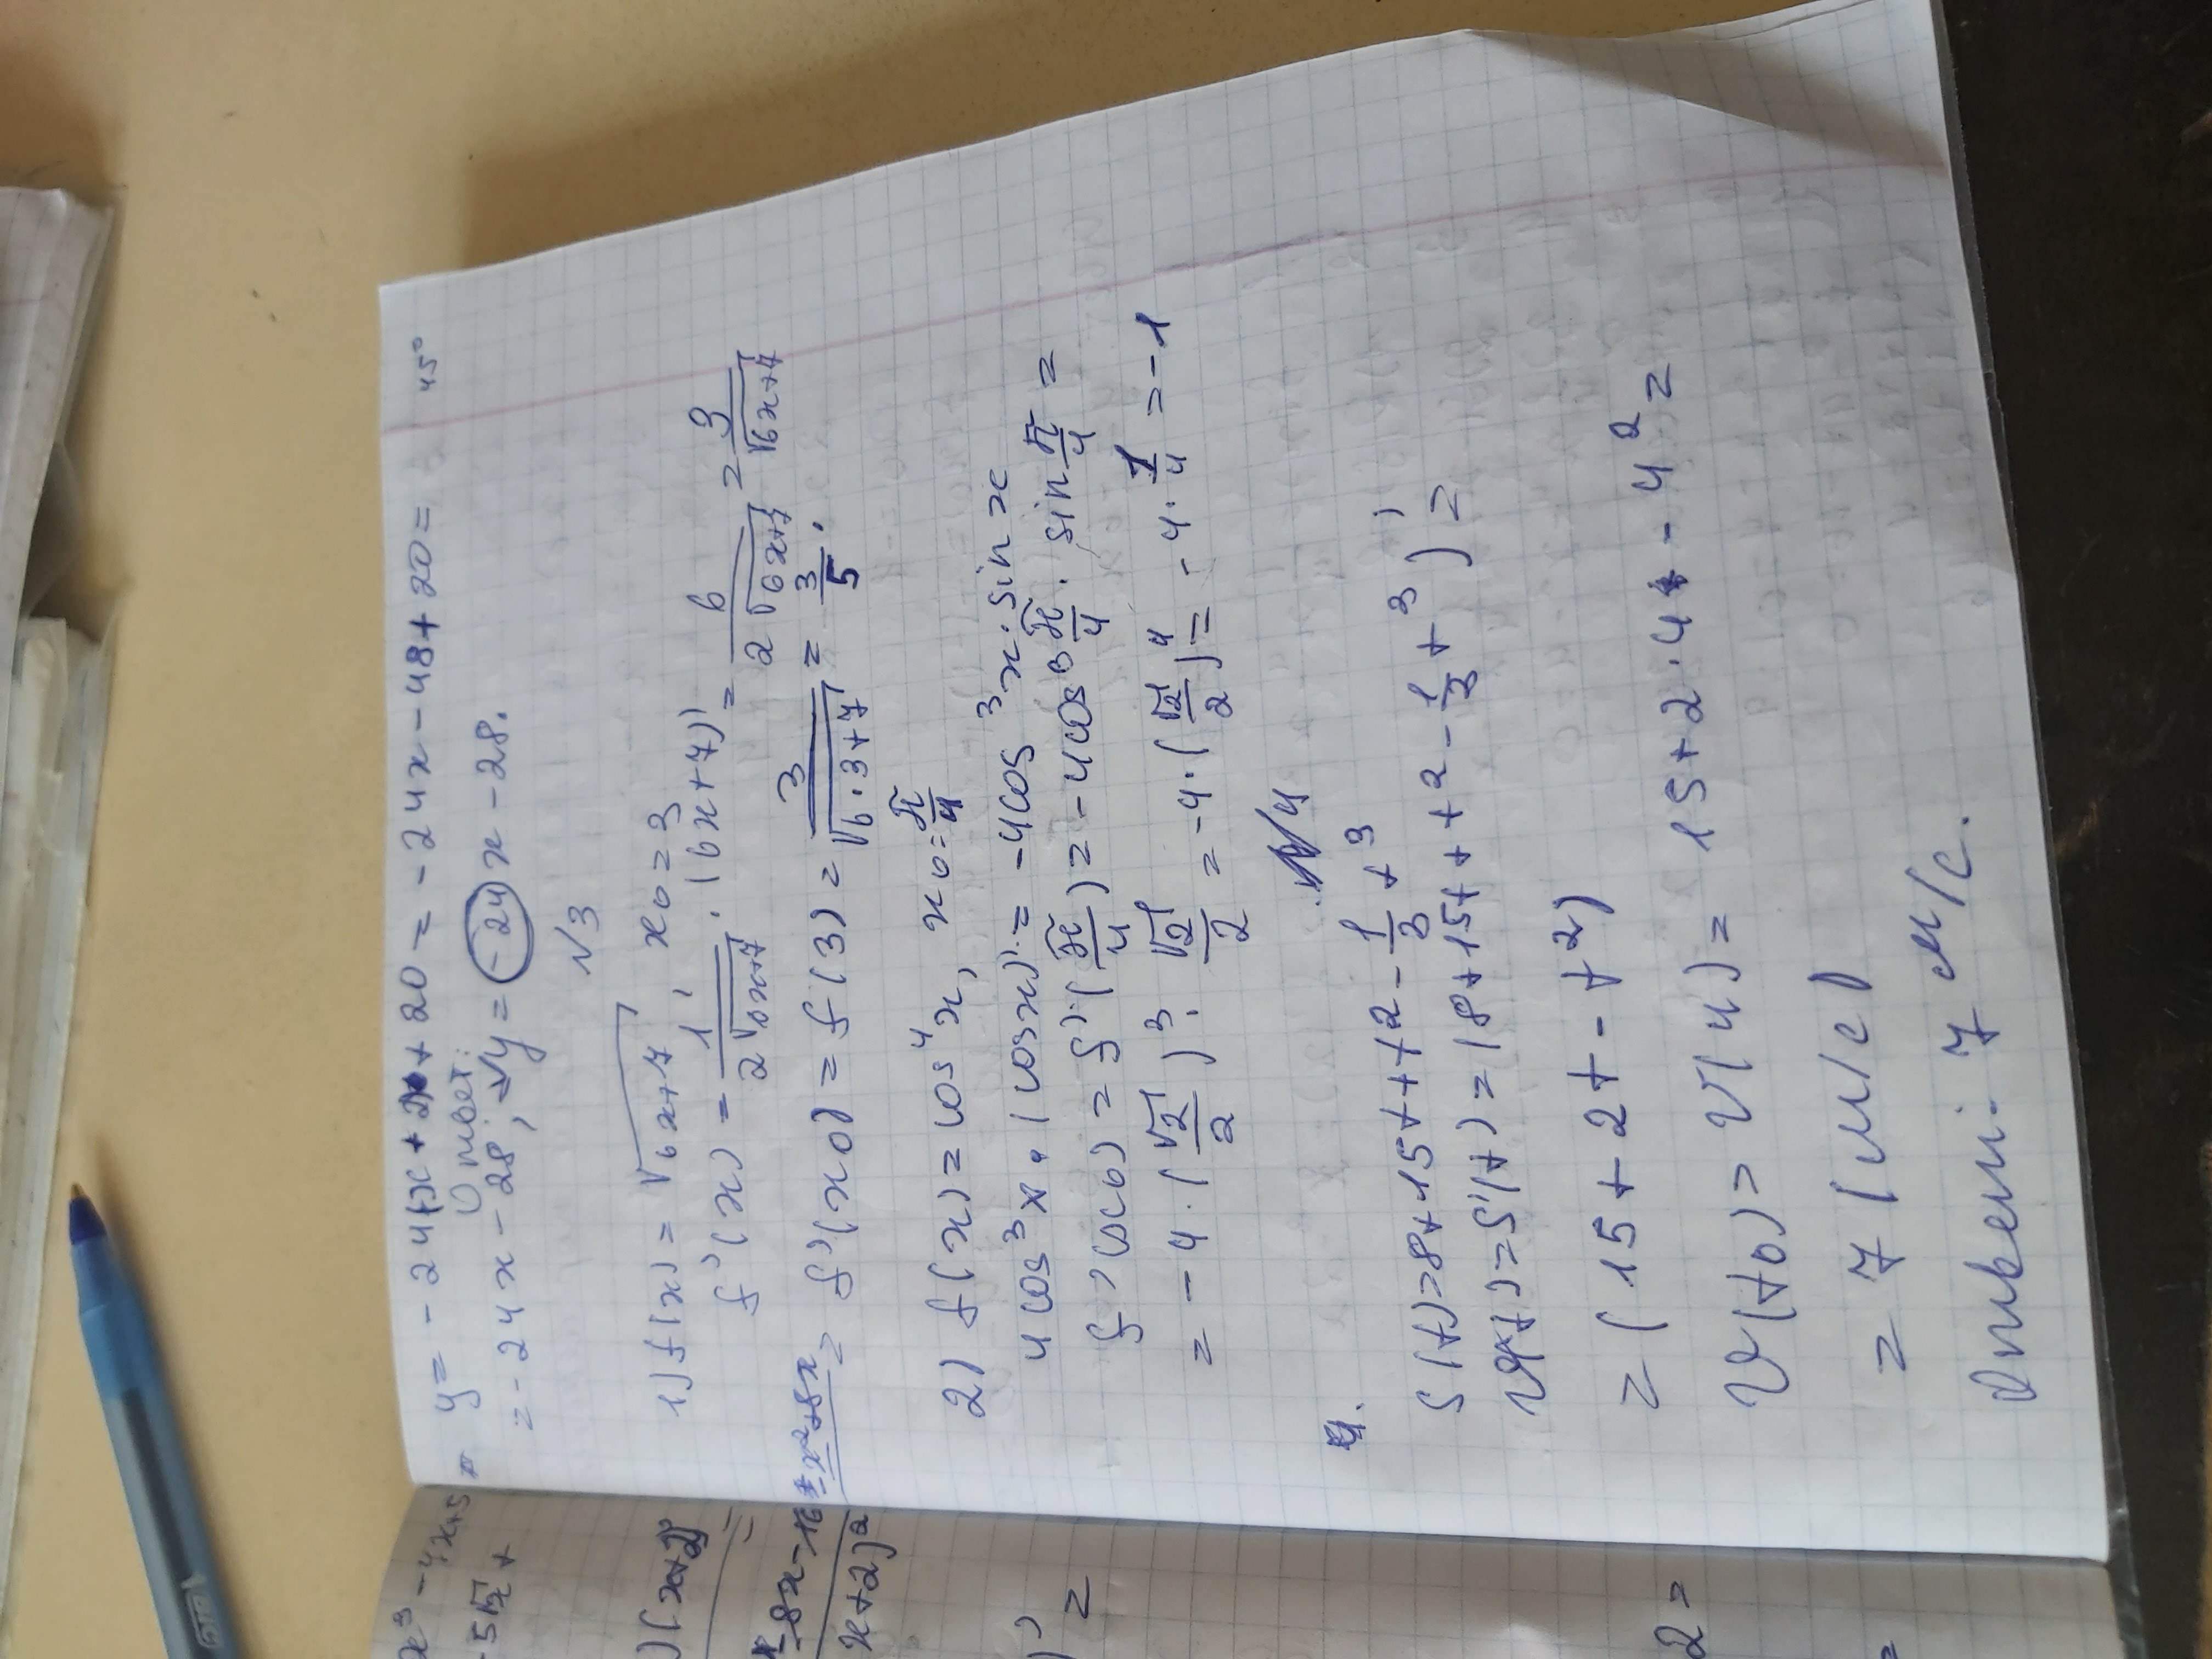 y = -24(x+2)+20 = -24x-48+20 = 45°
Ответ:
= -24x-28, y = -24x-28.
√3
1) f(x) = √6x+7, x0=3
f'(x) = 1/2√6x+7 · (6x+7)' = 6/2√6x+7 = 3/√6x+7
f'(x0) = f(3) = 3/√6·3+7 = 3/5.
2) f(x) = cos⁴x, x0 = π/4
4cos³x·(cosx)' = -4cos³x·sinx
f'(x0) = f'(π/4) = -4cos³π/4 · sin π/4 =
= -4·(√2/2)³·√2/2 = -4·(√2/2)⁴ = -4·1/4 = -1
N4
4.
S(t)=8+15t+t²-1/3t³
v(t)=S'(t)=(8+15t+t²-1/3t³)'=
=(15+2t-t²)
v(t0)=v(4)= 15+2·4-4²=
= 7 (м/с)
Ответ: 7 м/с.
x³-4x+5
-8x-16-x²+8x =
(x+2)²
)' =
2=
=